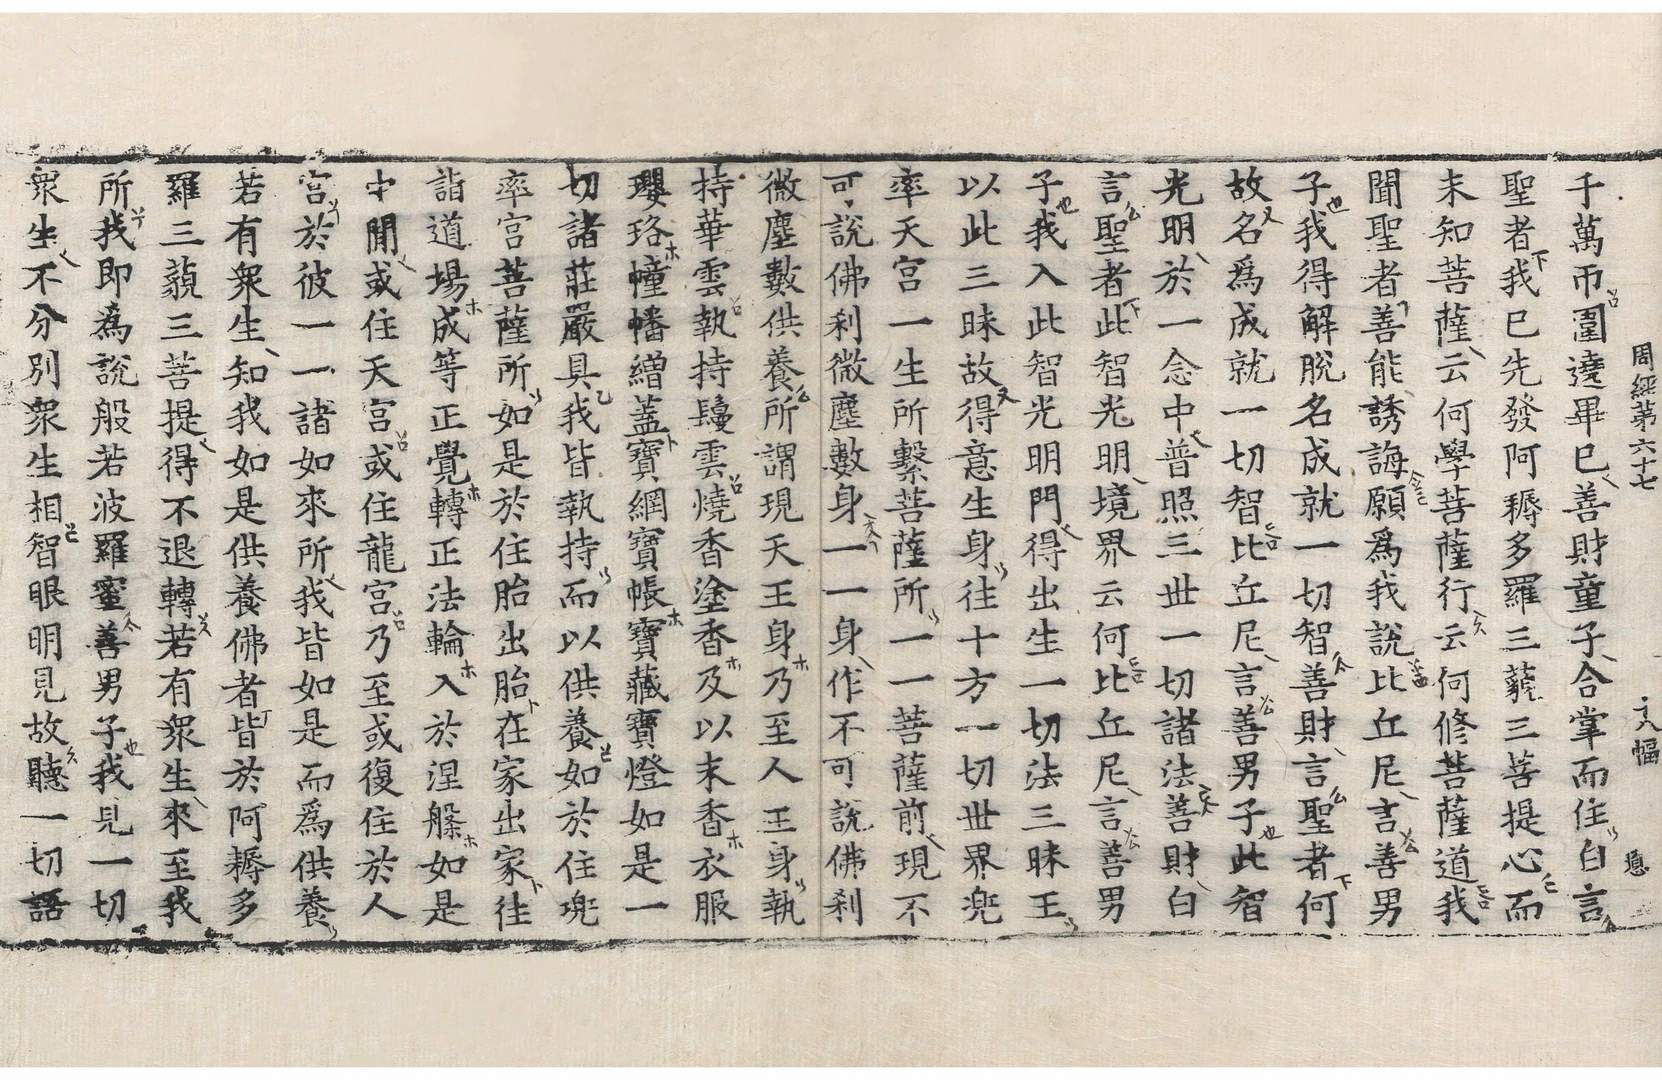 周經第六十七 文 八幅
千萬帀圍遶畢已善財童子合掌而住白言
聖者我已先發阿耨多羅三藐三菩提心而
未知菩薩云何學菩薩行云何修菩薩道我
聞聖者善能誘誨願爲我說比丘尼言善男
子我得解脫名成就一切智善財言聖者何
故名爲成就一切智比丘尼言善男子此智
光明於一念中普照三世一切諸法善財白
言聖者此智光明境界云何比丘尼言善男
子我入此智光明門得出生一切法三昧王
以此三昧故得意生身往十方一切世界兜
率天宮一生所繫菩薩所一一菩薩前現不
可說佛刹微塵數身一一身作不可說佛刹
微塵數供養所謂現天王身乃至人王身執
持華雲執持鬘雲燒香塗香及以末香衣服
瓔珞幢幡繒蓋寶網寶帳寶藏寶燈如是一
切諸莊嚴具我皆執持而以供養如於住兜
率宮菩薩所如是於住胎出胎在家出家往
詣道場成等正覺轉正法輪入於涅槃如是
中閒或住天宮或住龍宮乃至或復住於人
宮於彼一一諸如來所我皆如是而爲供養
若有衆生知我如是供養佛者皆於阿耨多
羅三藐三菩提得不退轉若有衆生來至我
所我即爲說般若波羅蜜善男子我見一切
衆生不分別衆生相智眼明見故聽一切語